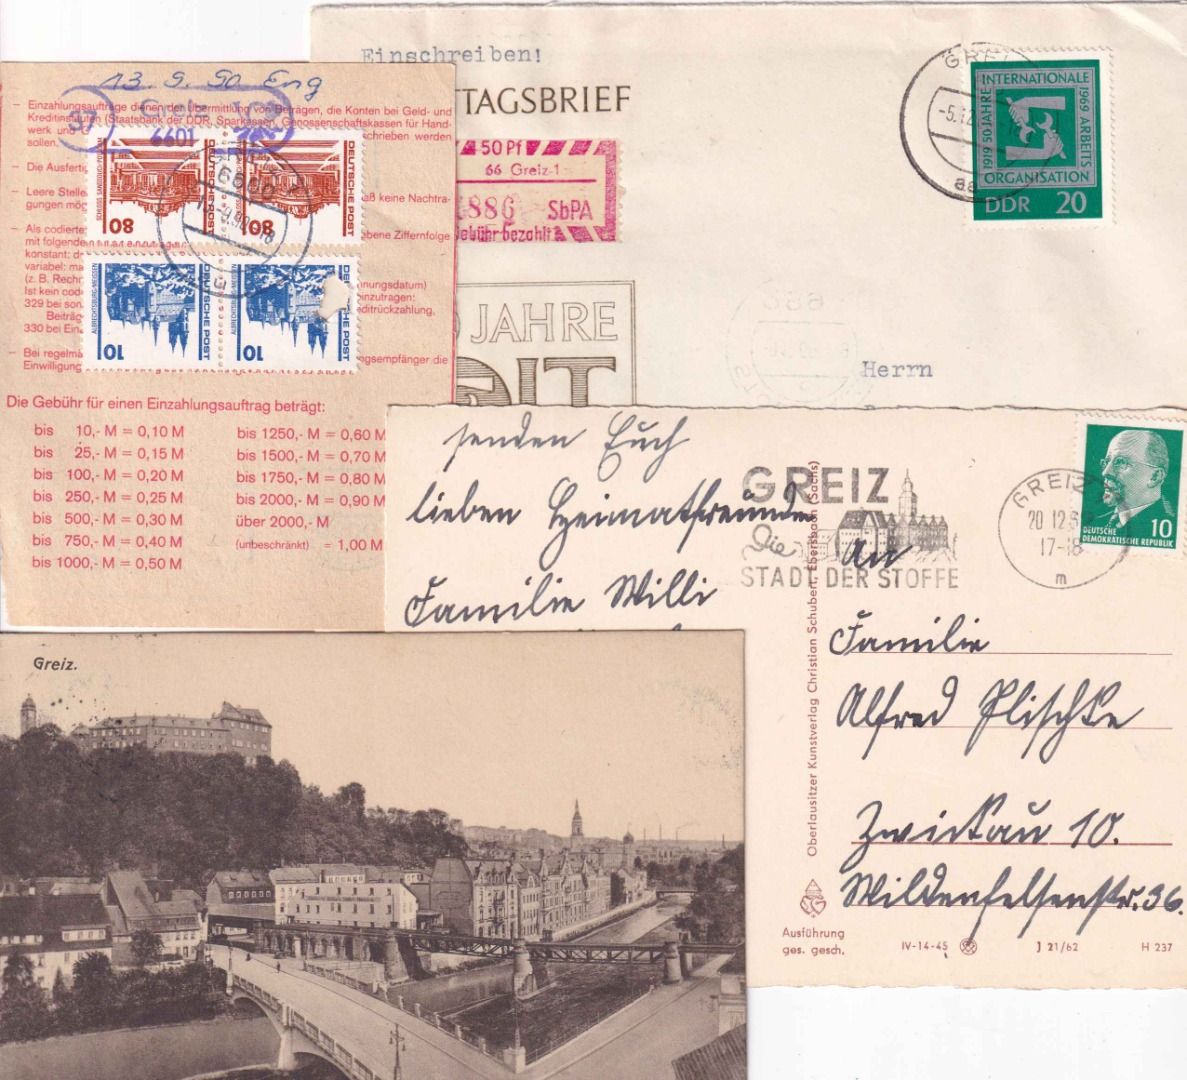 Einschreiben!
TAGSBRIEF
50 Pf
66 Greiz-1
886 SbPA
Gebühr bezahlt
JAHRE
Herrn
GREIZ
INTERNATIONALE
1919 50 JAHRE
1969 ARBEITS
ORGANISATION
DDR 20
13. 9. 90 Eng
37
6601
– Einzahlungsaufträge dienen der Übermittlung von Beträgen, die Konten bei Geld- und
Kreditinstituten (Staatsbank der DDR, Sparkassen, Genossenschaftskassen für Hand-
werk und
schrieben werden
sollen.
– Die Ausfertig
– Leere Stelle
daß keine Nachtra-
gungen mög
– Als codierte
ebene Ziffernfolge
mit folgende
konstant:
variabel:
(z. B. Rechn
nungsdatum)
Ist kein code
einzutragen:
329 bei son
Kreditrückzahlung,
Beiträge
330 bei Einz
– Bei regelmä
ngsempfänger die
Einwilligung
6600
DEUTSCHE POST
80
DEUTSCHE POST
80
ALBRECHTSBURG MEISSEN
DEUTSCHE POST
10
ALBRECHTSBURG MEISSEN
DEUTSCHE POST
10
Die Gebühr für einen Einzahlungsauftrag beträgt:
bis 10,- M = 0,10 M
bis 25,- M = 0,15 M
bis 100,- M = 0,20 M
bis 250,- M = 0,25 M
bis 500,- M = 0,30 M
bis 750,- M = 0,40 M
bis 1000,- M = 0,50 M
bis 1250,- M = 0,60 M
bis 1500,- M = 0,70 M
bis 1750,- M = 0,80 M
bis 2000,- M = 0,90 M
über 2000,- M
(unbeschränkt) = 1,00 M
senden Euch
lieben Heimatfreunde
Familie Willi
GREIZ
Die
STADT DER STOFFE
GREIZ
20 12
17-18
m
10
DEUTSCHE
DEMOKRATISCHE REPUBLIK
An
Familie
Alfred Plischke
Zwickau 10.
Wildenfelsenstr. 36.
Oberlausitzer Kunstverlag Christian Schubert, Ebersbach (Sachs)
Ausführung
ges. gesch.
IV-14-45
J 21/62
H 237
Greiz.